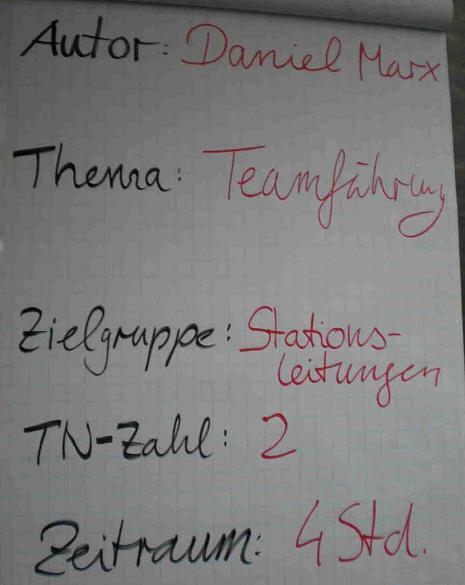 Autor: Daniel Marx
Thema: Teamführung
Zielgruppe: Stations-
leitungen
TN-Zahl: 2
Zeitraum: 4 Std.